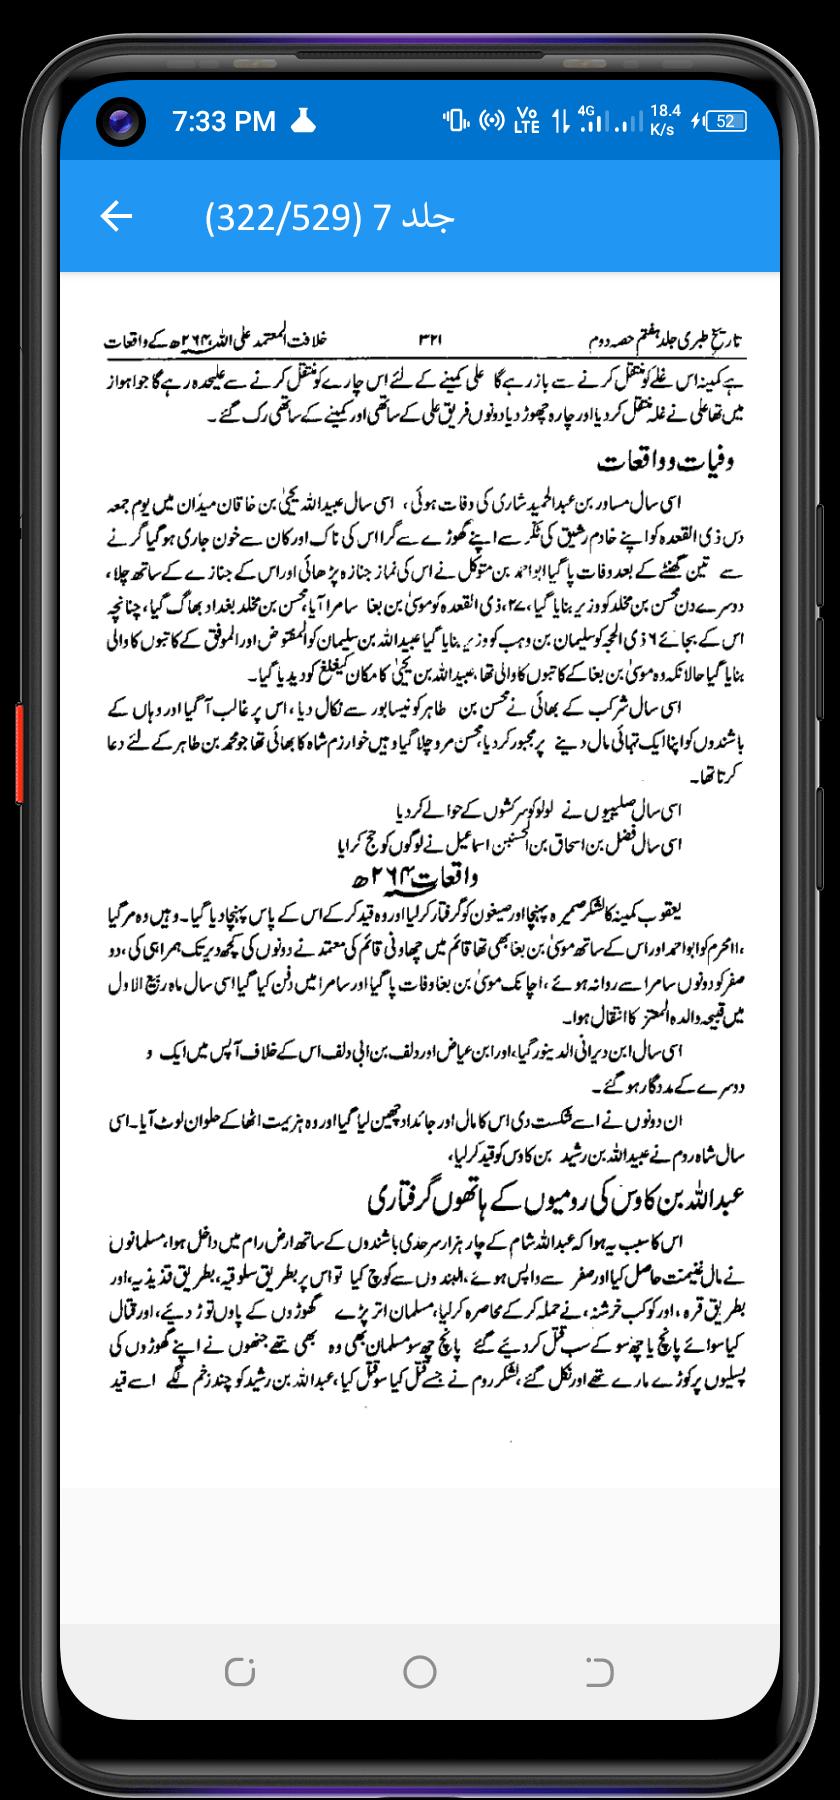 7:33 PM
Vo LTE 4G 18.4 K/s 52
جلد 7 (322/529)
تاریخ طبری جلد ہفتم حصہ دوم ۳۲۱ خلافت المعتمد علی اللہ ۲۶۴ھ کے واقعات
ہے کمینہ اس غلے کو منتقل کرنے سے باز رہے گا علی کمینے کے لئے اس چارے کو منتقل کرنے سے علیحدہ رہے گا جو اہواز
میں تھا علی نے غلہ منتقل کر دیا اور چارہ چھوڑ دیا دونوں فریق علی کے ساتھی اور کمینے کے ساتھی رک گئے۔
وفیات و واقعات
اسی سال مساور بن عبدالحمید شاری کی وفات ہوئی، اسی سال عبیداللہ یحییٰ بن خاقان میدان میں یوم جمعہ
دس ذی القعدہ کو اپنے خادم رشیق کی ٹکر سے اپنے گھوڑے سے گرا اس کی ناک اور کان سے خون جاری ہو گیا گرنے
سے تین گھنٹے کے بعد وفات پا گیا ابو احمد بن متوکل نے اس کی نماز جنازہ پڑھائی اور اس کے جنازے کے ساتھ چلا،
دوسرے دن حسن بن مخلد کو وزیر بنایا گیا، ۲۷، ذی القعدہ کو موسیٰ بن بغا سامرا آیا، حسن بن مخلد بغداد بھاگ گیا، چنانچہ
اس کے بجائے ۶ ذی الحجہ کو سلیمان بن وہب کو وزیر بنایا گیا عبیداللہ بن سلیمان کو المفوض اور الموفق کے کاتبوں کا والی
بنایا گیا حالانکہ وہ موسیٰ بن بغا کے کاتبوں کا والی تھا، عبیداللہ بن یحییٰ کا مکان کیغلغ کو دیدیا گیا۔
اسی سال شرکب کے بھائی نے حسن بن طاہر کو نیساپور سے نکال دیا، اس پر غالب آ گیا اور وہاں کے
باشندوں کو اپنا ایک تہائی مال دینے پر مجبور کر دیا، حسن مرو چلا گیا وہیں خوارزم شاہ کا بھائی تھا جو محمد بن طاہر کے لئے دعا
کرتا تھا۔
اسی سال صلیبیوں نے لولو کو سرکشوں کے حوالے کر دیا
اسی سال فضل بن اسحاق بن الحسن بن اسماعیل نے لوگوں کو حج کرایا
واقعات ۲۶۴ھ
یعقوب کمینہ کا لشکر صمیرہ پہنچا اور صیغون کو گرفتار کر لیا اور وہ قید کر کے اس کے پاس پہنچا دیا گیا۔ وہیں وہ مر گیا
،۱۱ محرم کو ابو احمد اور اس کے ساتھ موسیٰ بن بغا بھی تھا قائم میں چھاونی قائم کی معتمد نے دونوں کی کچھ دیر تک ہمراہی کی، دو
صفر کو دونوں سامرا سے روانہ ہوئے، اچانک موسیٰ بن بغا وفات پا گیا اور سامرا میں دفن کیا گیا اسی سال ماہ ربیع الاول
میں قبیحہ والدہ المعتز کا انتقال ہوا۔
اسی سال ابن دیرانی الدینور گیا، اور ابن عیاض اور دلف بن ابی دلف اس کے خلاف آپس میں ایک و
دوسرے کے مددگار ہو گئے۔
ان دونوں نے اسے شکست دی اس کا مال اور جائداد چھین لیا گیا اور وہ ہزیمت اٹھا کے حلوان لوٹ آیا۔ اسی
سال شاہ روم نے عبیداللہ بن رشید بن کاوس کو قید کر لیا،
عبداللہ بن کاوس کی رومیوں کے ہاتھوں گرفتاری
اس کا سبب یہ ہوا کہ عبداللہ شام کے چار ہزار سرحدی باشندوں کے ساتھ ارض رام میں داخل ہوا، مسلمانوں
نے مال غنیمت حاصل کیا اور صفر سے واپس ہوئے، البندوں سے کوچ کیا تو اس پر بطریق سلوقیہ، بطریق قذیذیہ، اور
بطریق قرہ، اور کوکب خرشنہ، نے حملہ کر کے محاصرہ کر لیا، مسلمان اتر پڑے گھوڑوں کے پاوں توڑ دیئے، اور قتال
کیا سوائے پانچ یا چھ سو کے سب قتل کر دیئے گئے پانچ چھ سو مسلمان بھی وہ بھی تھے جنھوں نے اپنے گھوڑوں کی
پسلیوں پر کوڑے مارے تھے اور نکل گئے، لشکر روم نے جسے قتل کیا سو قتل کیا، عبداللہ بن رشید کو چند زخم لگے اسے قید